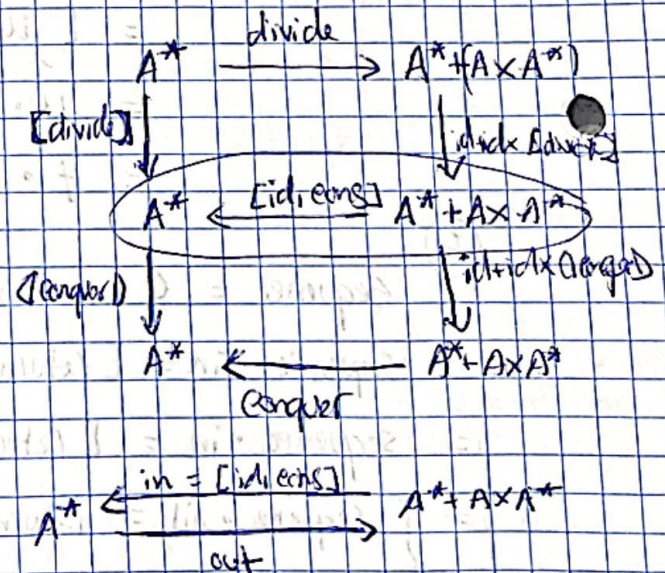 divide
A* → A*+(A×A*)
[divide] id+id×[divide]
A* ← [id,cons] A*+A×A*
(|conquer|) id+id×(|conquer|)
A* ← A*+A×A*
conquer
in = [id,cons]
A* A*+A×A*
out